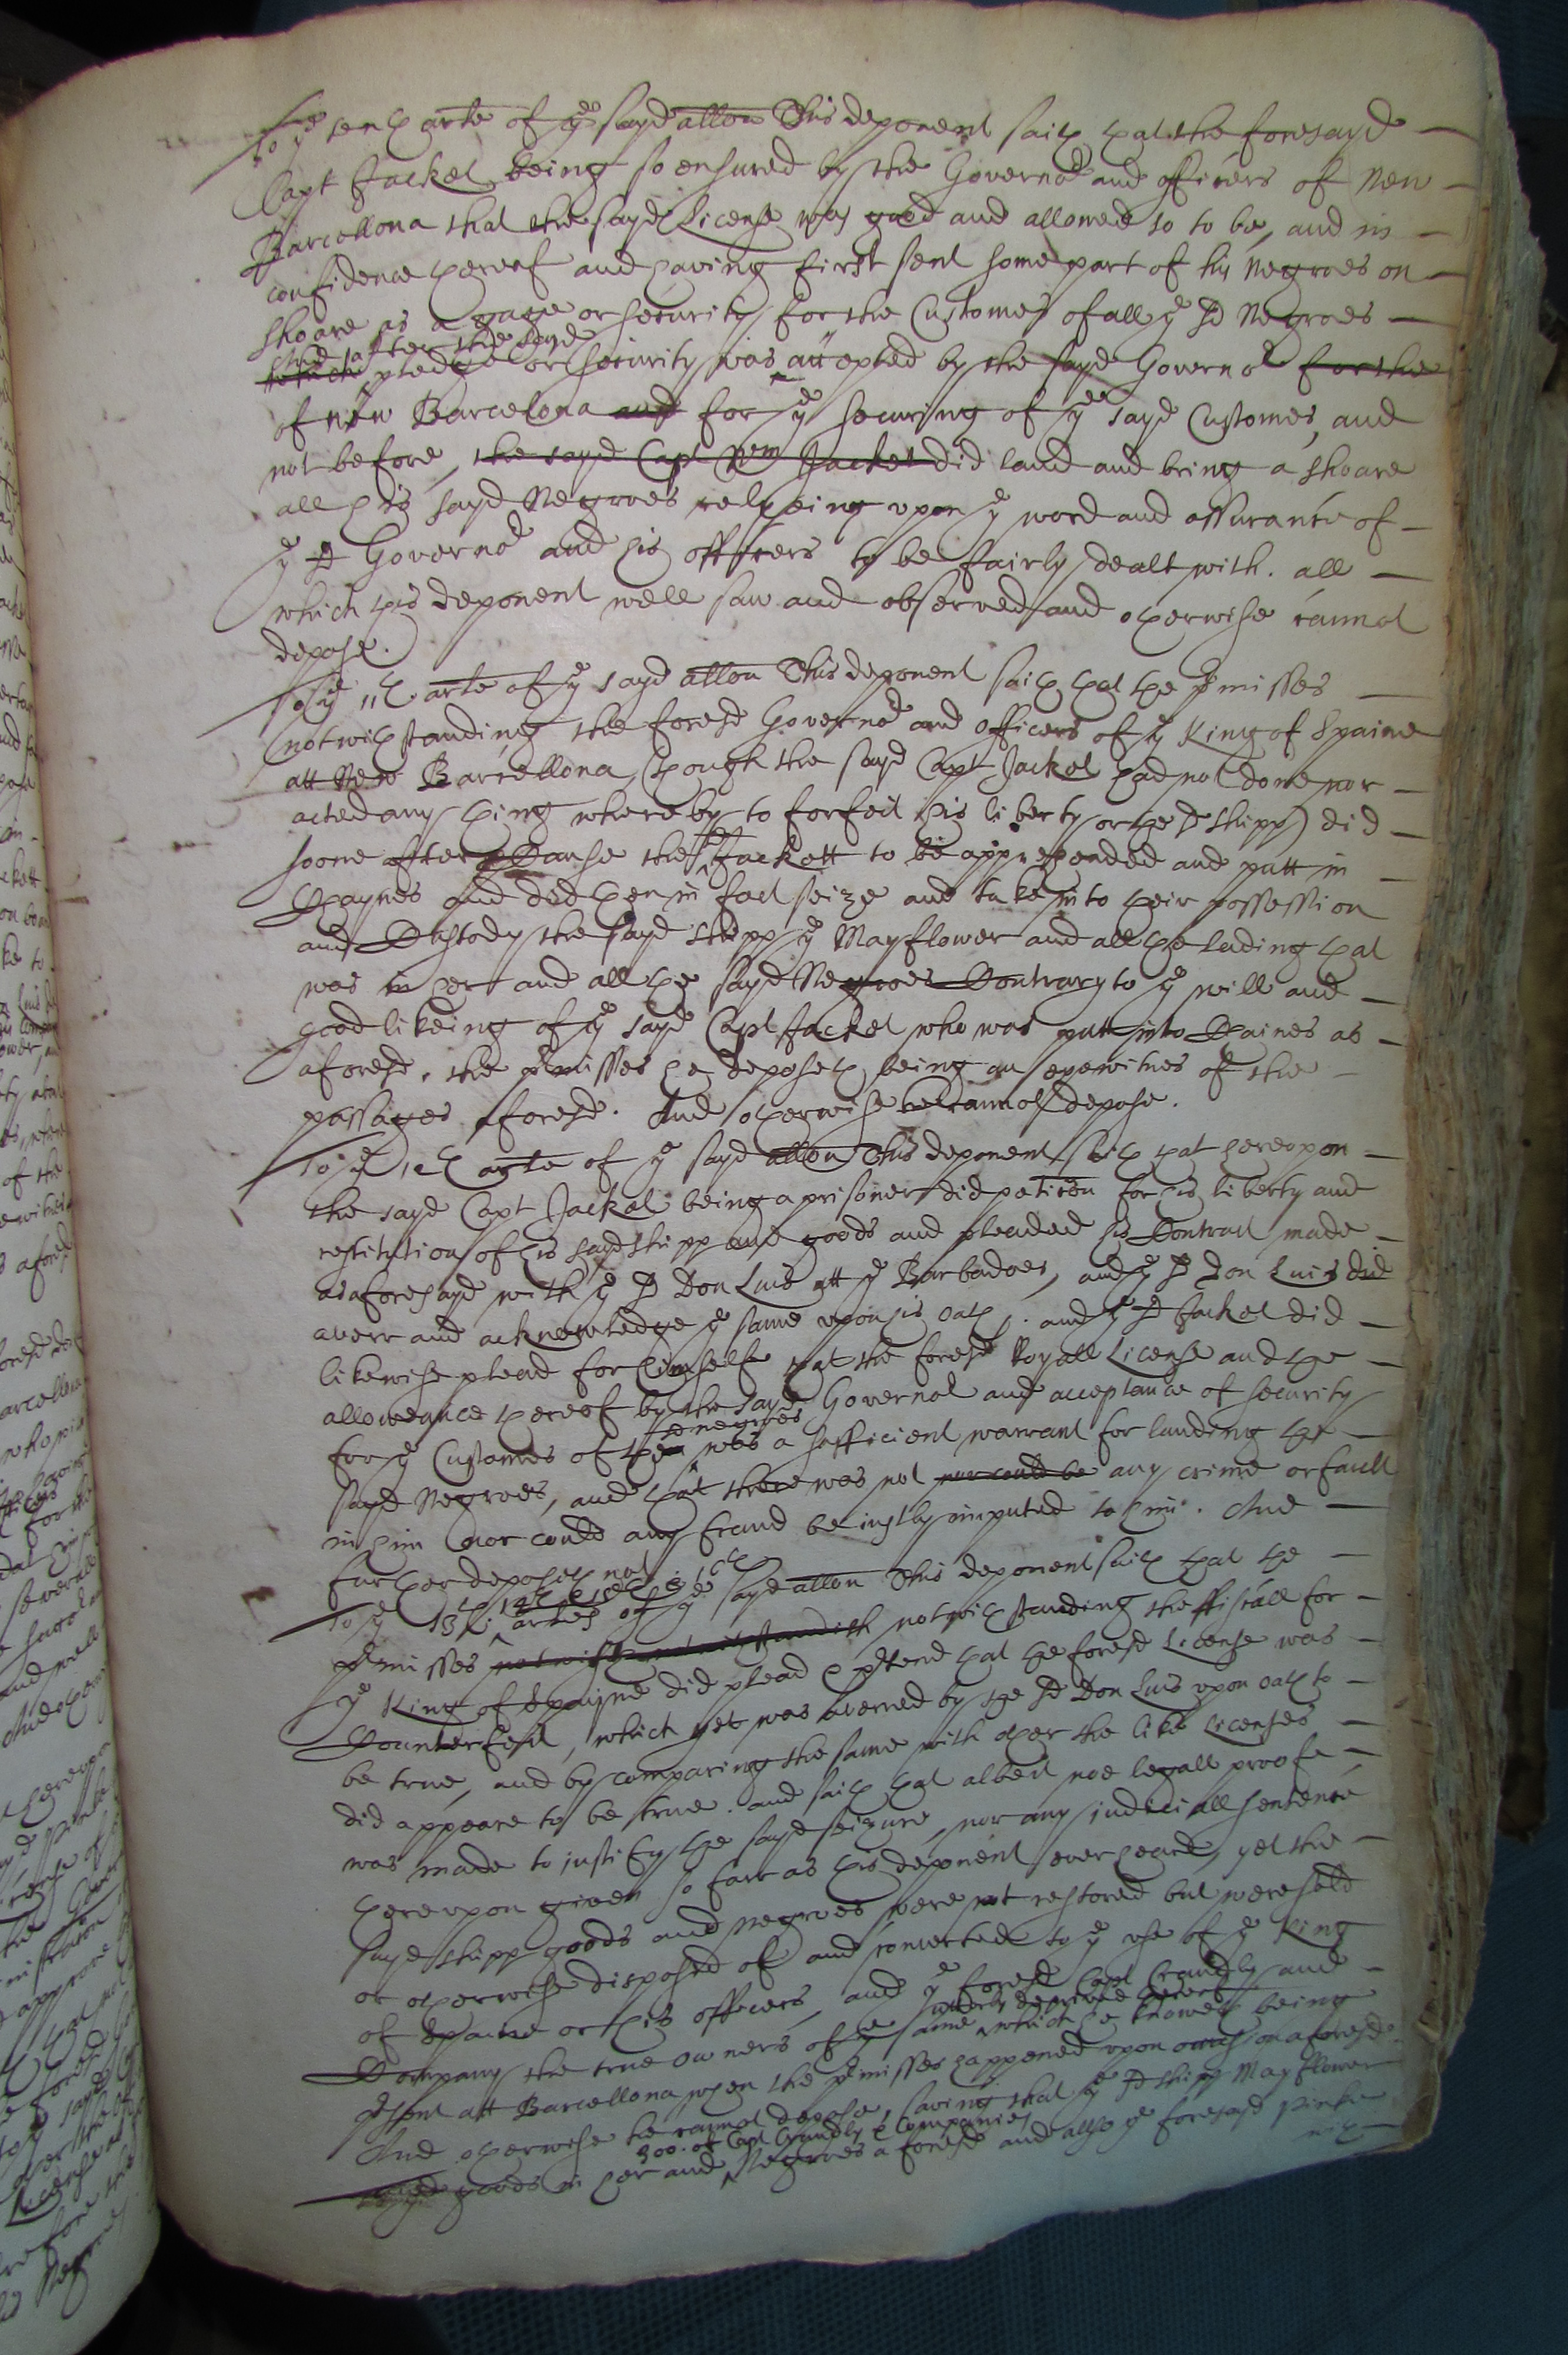 To ye tenth arte of ye sayd allon This deponent saith that the foresayd
Capt Jackel being so ensured by the Governor and officers of New
Barcellona that the sayd License was good and allowed so to be, and in
confidence thereof and having first sent some part of his Negroes on
shoare as a gage or security for the Customes of all ye sd Negroes
and after the sayd
which pledge or security was accepted by the sayd Governor for the
of new Barcelona and for ye securing of ye sayd Customes, and
not before, the sayd Capt Wm Jackel did land and bring a shoare
all his sayd Negroes relyeing upon ye word and assurance of
ye sd Governor and his officers to be fairly dealt with. all
which this deponent well saw and observed and otherwise cannot
depose.
To ye 11th arte of ye sayd allon This deponent saith that the pmisses
(notwithstanding the foresd Governor and officers of ye King of Spaine
att New Barcellona, though the sayd Capt Jackel had not done nor
acted any thing whereby to forfeit his liberty or the sd shipp) did
soone after Cause the sd Jackett to be apprehended and putt in
Chaynes and did then in fact seize and take into their possession
and Custody the sayd shipp ye Mayflower and all the lading that
was in her and all the sayd Negroes Contrary to ye will and
good likeing of ye sayd Capt Jackel who was putt into Chaines as
aforesd, the pmisses he deposeth being an eyewitnes of the
passages aforesd. And otherwise hee cannot depose.
To ye 12th arte of ye sayd allon This deponent saith that hereupon
the sayd Capt Jackel being a prisoner did peticon for his liberty and
restitution of his sayd shipp and goods and pleaded his Contract made
as aforesayd with ye sd Don Luis att ye Barbadoes, and ye sd Don Luis did
averr and acknowledge ye same upon his oath, and ye sd Jackel did
likewise plead for himself that the foresd Royall License and the
allowance thereof by the sayd Governor and acceptance of security
for ye Customes of the sd negroes was a sufficient warrant for landing the
sayd Negroes, and that there was not nor could be any crime or fault
in him nor could any fraud be justly imputed to him. And
further deposeth not.
To ye 13th 14th 15th & 16th artes of ye sayd allon This deponent saith that the
pmisses notwithstanding the ffiscall for
ye King of Spayne did plead & ptend that the foresd License was
Counterfeit, which yet was averred by the sd Don Luis upon oath to
be true, and by comparing the same with other the like Licenses
did appeare to be true. and saith that albeit noe legall proofe
was made to justify the sayd seizure, nor any judiciall sentence
thereupon given so farr as this deponent ever heard, yet the
sayd shipp goods and negroes were not restored but were sold
or otherwise disposed of and converted to ye use of ye King
of Spaine or his officers, and ye foresd Capt Crandly and
utterly deprived thereof
Company the true owners of ye same which he knoweth being
psent att Barcellona when the pmisses happened upon occasion aforesd
And otherwise he cannot depose, saving that ye sd shipp Mayflower
300. of Capt Crandly & Companies
goods in her and Negroes aforesd and allso ye foresayd Pinke
with